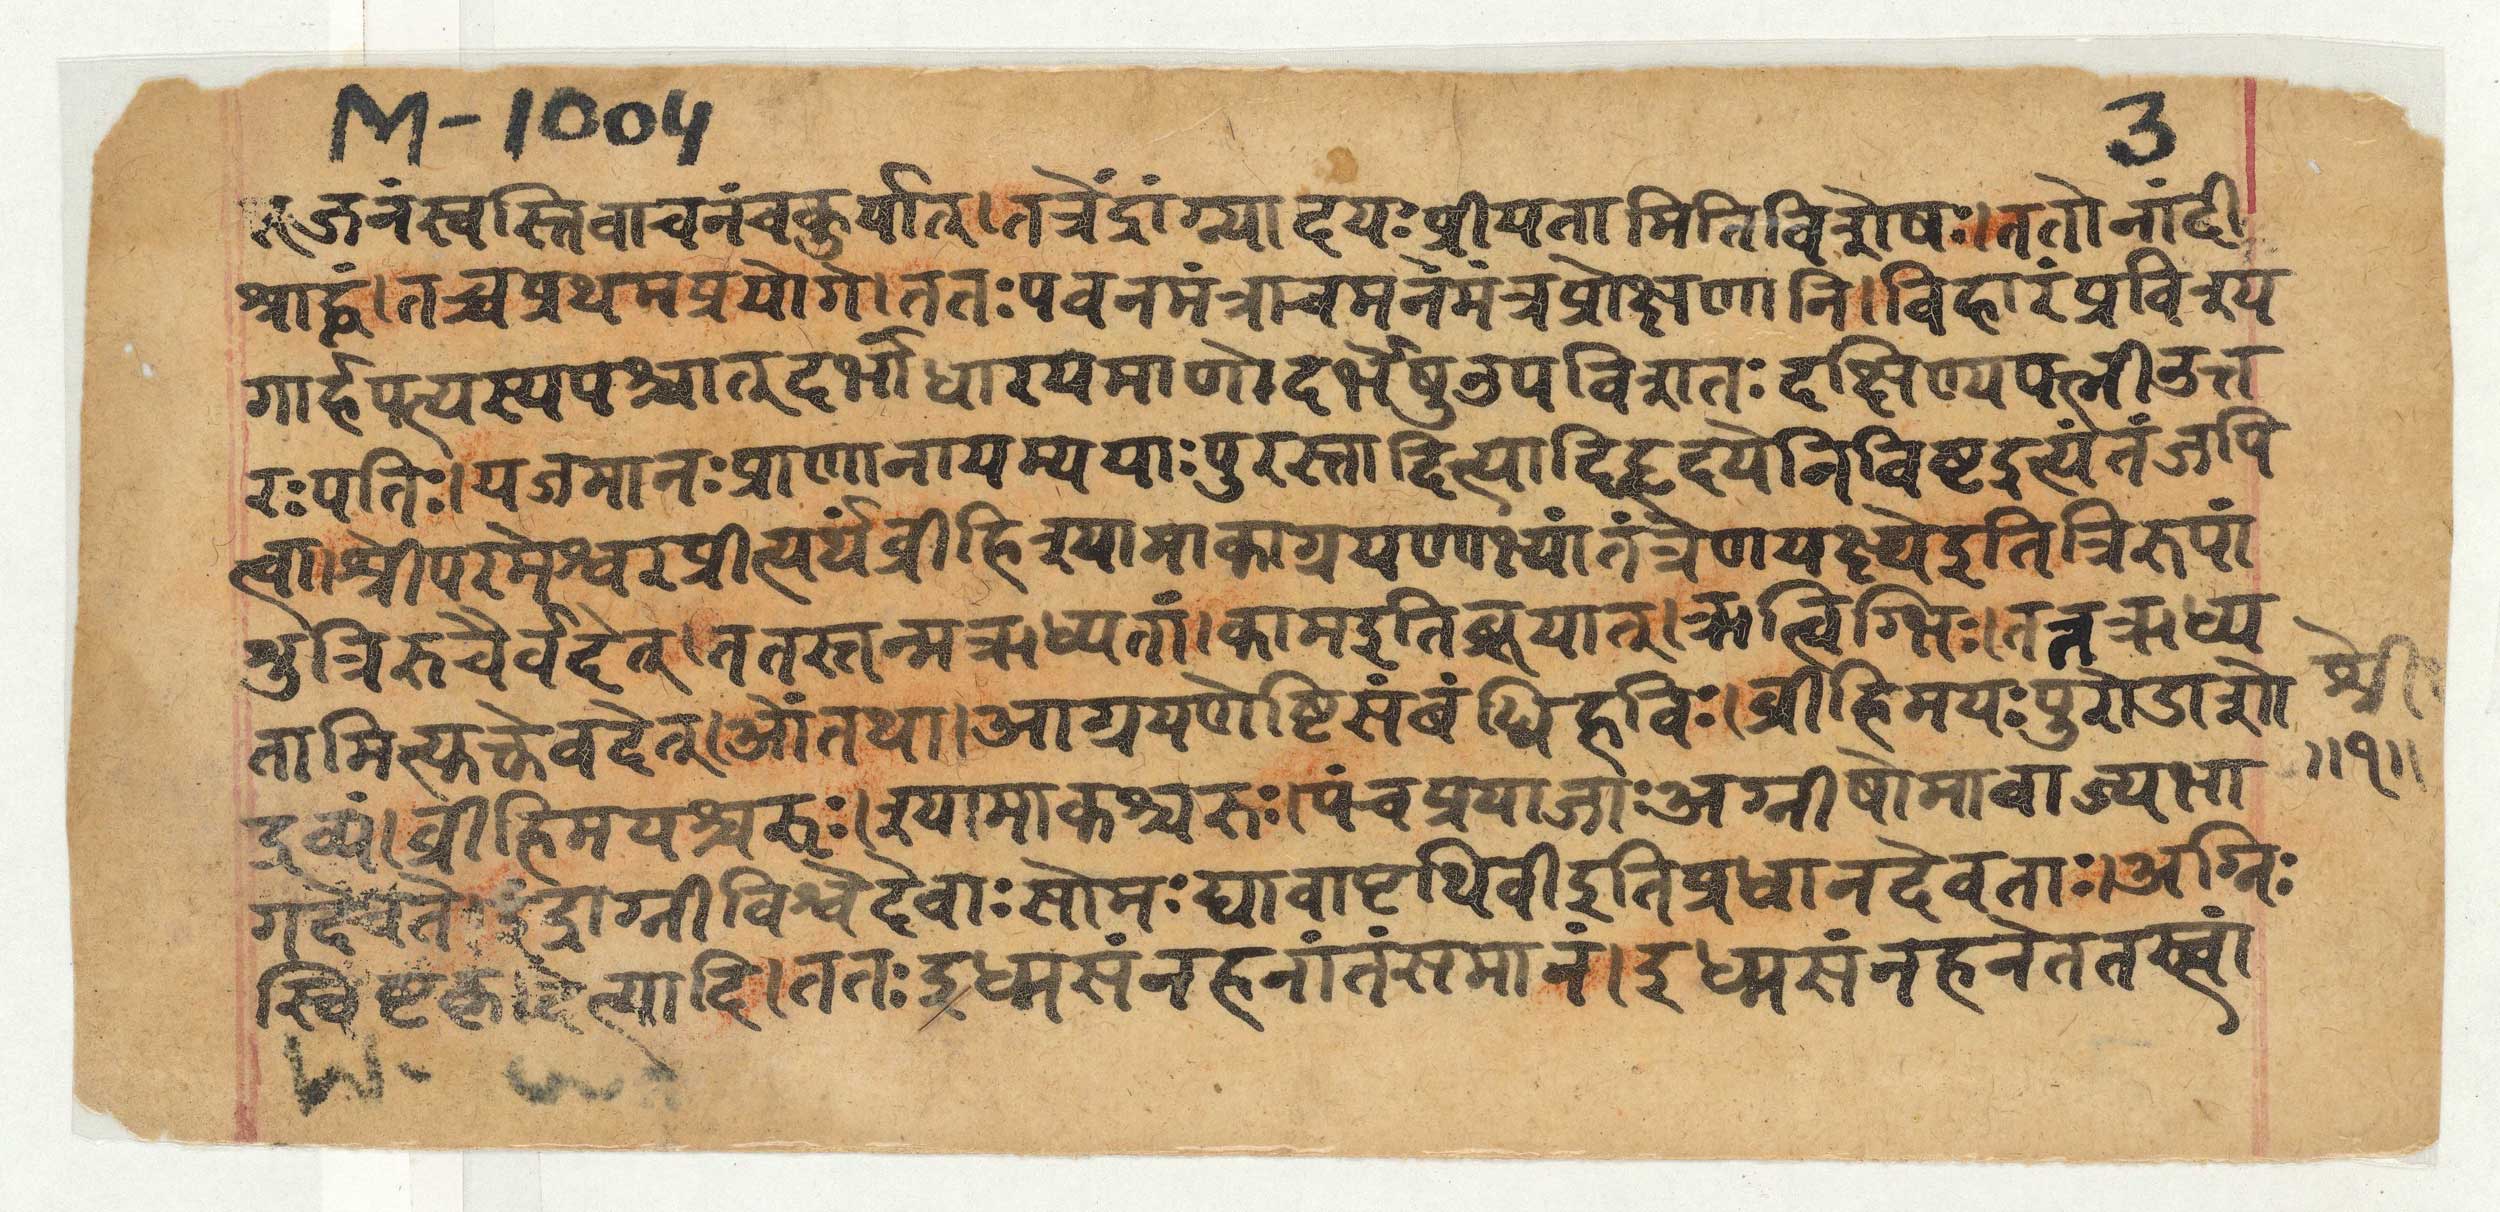 M-1004 3
जनंस्वस्तिवाचनंचकुर्यात्।तत्रेंद्रांग्न्यादयःप्रीयतामितिविशेषः।ततोनांदी
श्राद्धं।तच्चप्रथमप्रयोगे।ततःपवनमंत्राचमनंमंत्रप्रोक्षणानि।विहारंप्रविश्य
गार्हपत्यस्यपश्चात्दर्भांधारयमाणोदर्भेषुउपविशतः दक्षिण्यपत्नीउत्त
रःपतिः।यजमानःप्राणानायम्ययाःपुरस्तादित्यादिहृदयेनिविष्टइत्यंतंजपि
त्वा।श्रीपरमेश्वरप्रीत्यर्थंव्रीहिश्यामाकाग्रयणाभ्यांतंत्रेणयक्ष्येइतित्रिरुपां
शुत्रिरुचैर्वदेत्।ततस्तन्मऋध्यतां।कामइतिब्रूयात्।ऋत्विग्भिः।तन्नऋध्य
तामित्युक्तेवदेत्।ओंतथा।आग्रयणेष्टिसंबंधिहविः।व्रीहिमयःपुरोडाशो
द्रव्यं।व्रीहिमयश्चरुः।श्यामाकश्चरुः।पंचप्रयाजाःअग्नीषोमावाज्यभा
॥१॥
गदेवते।इंद्राग्नीविश्वेदेवाःसोमःद्यावापृथिवीइतिप्रधानदेवताः।अग्निः
स्विष्टकृदित्यादि।ततःइध्मसंनहनांतंसमानं।इध्मसंनहनेततस्त्वां